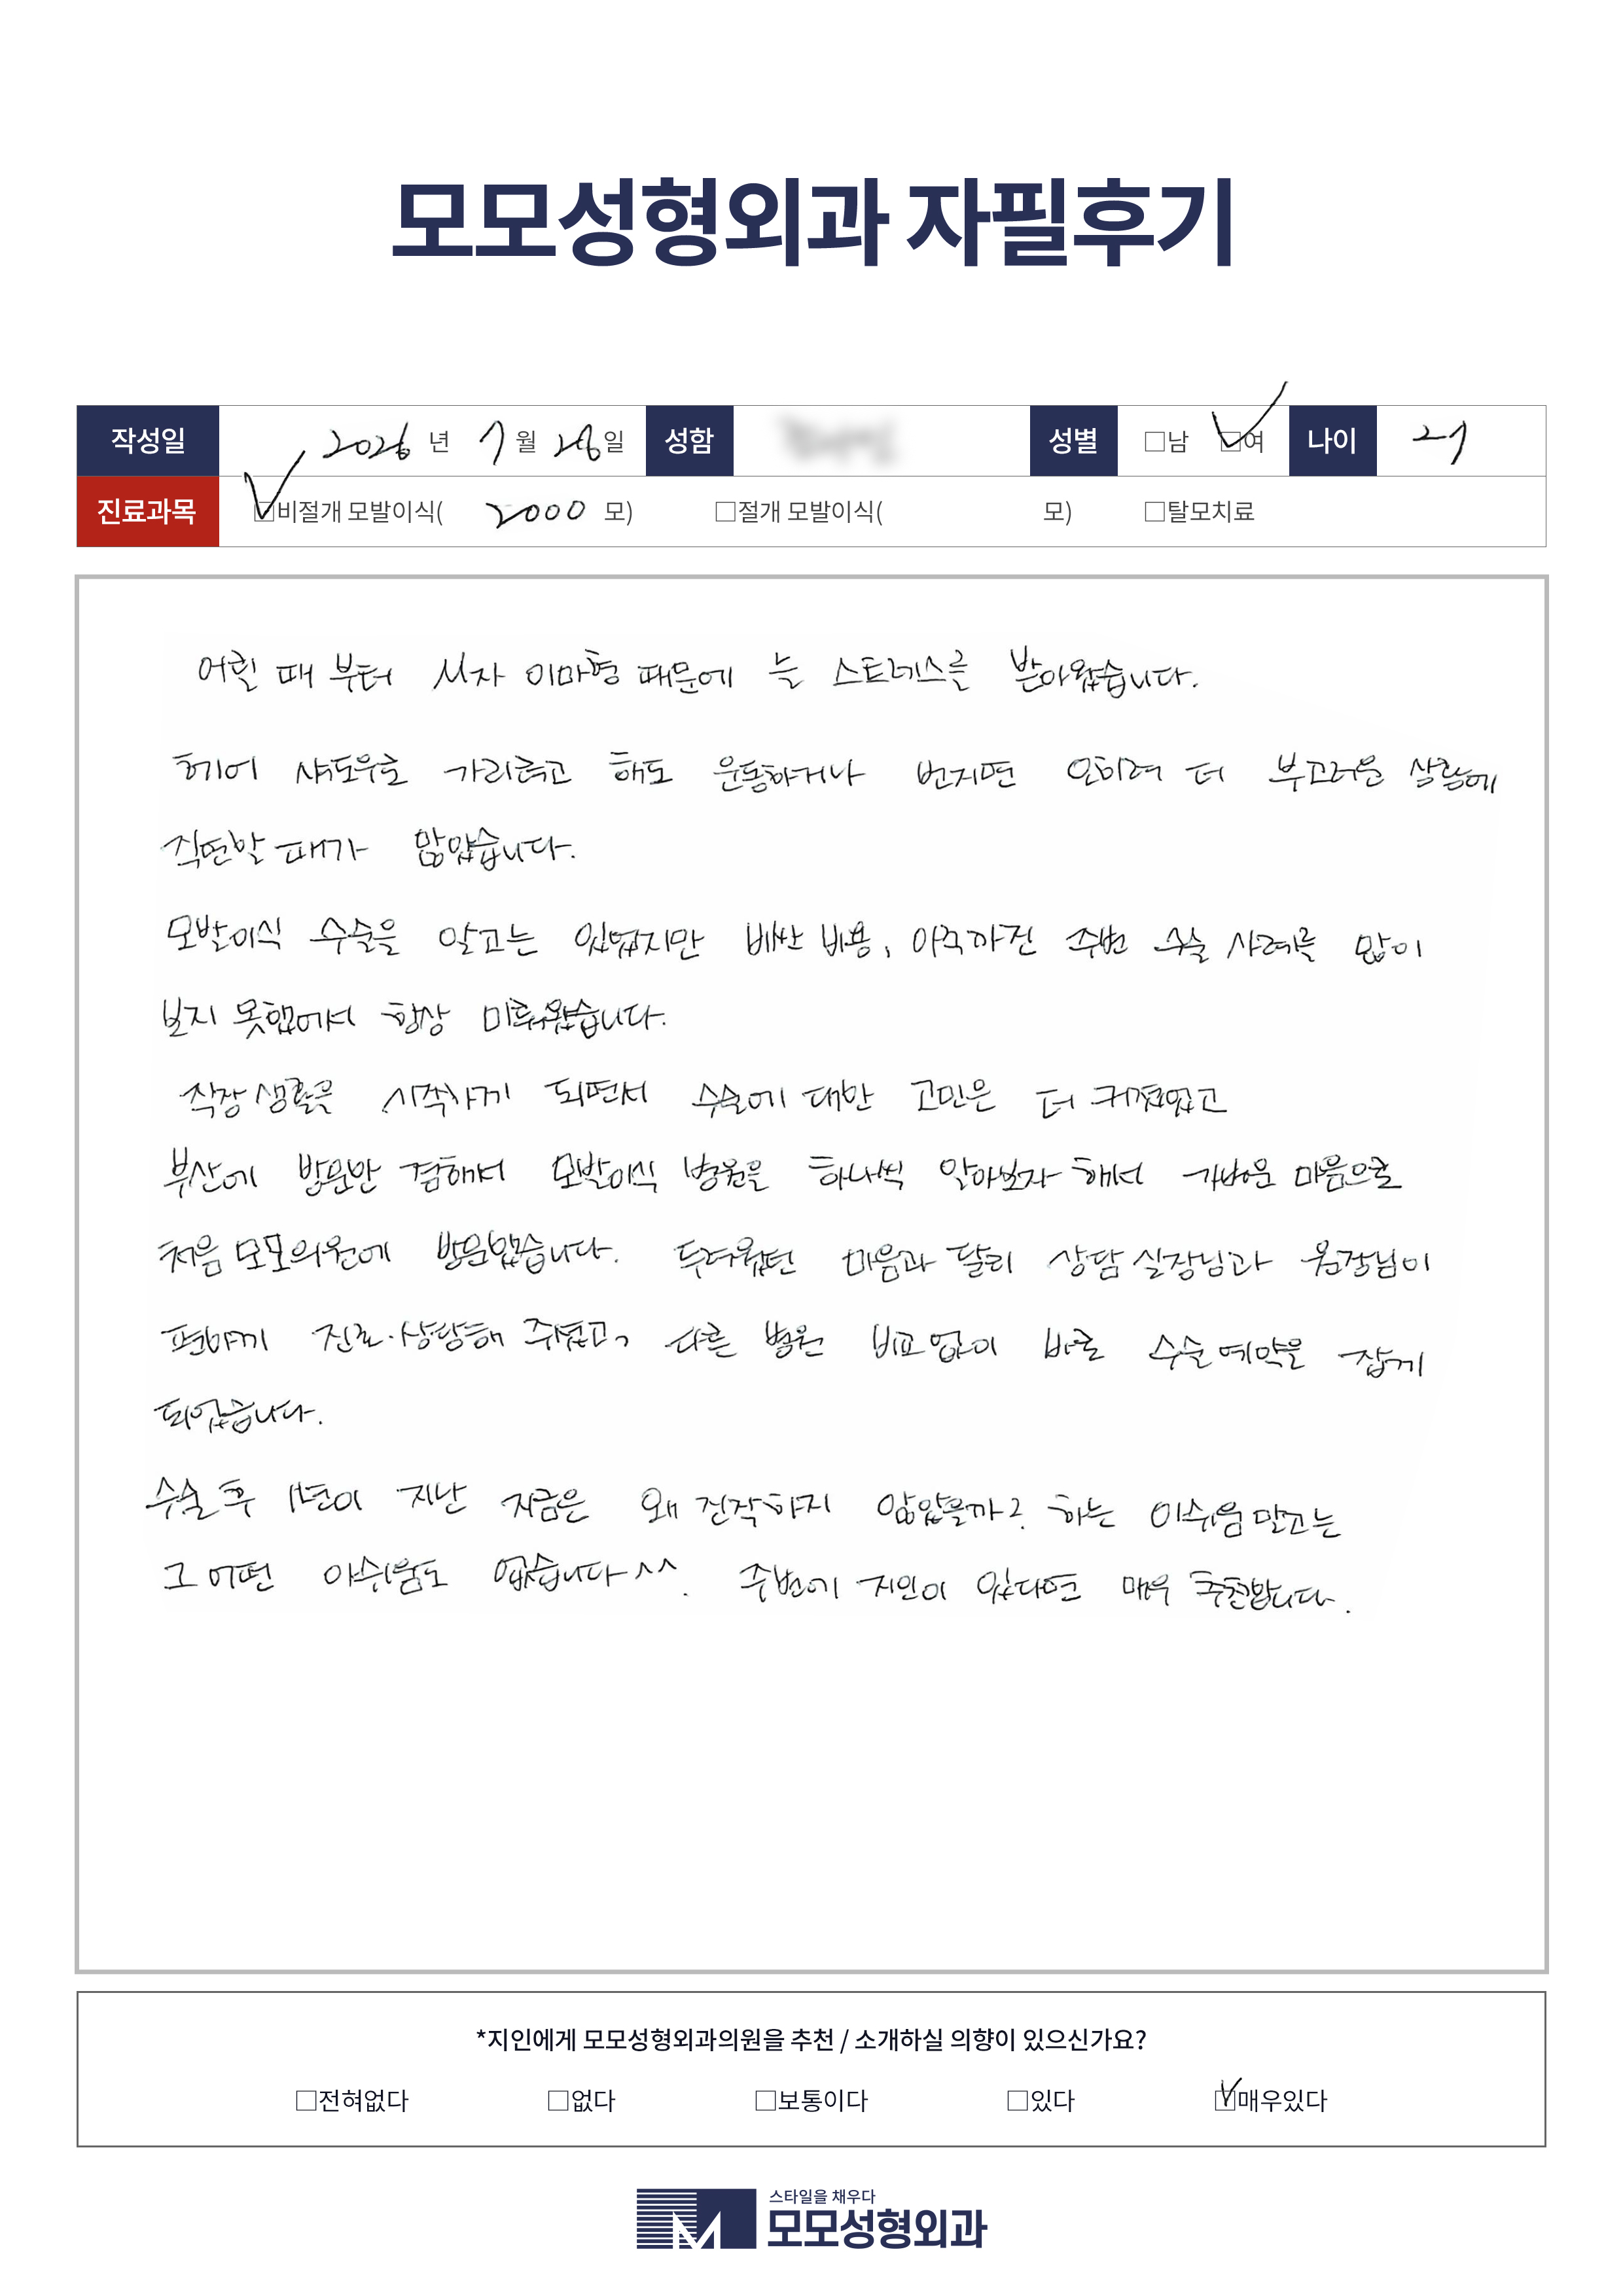 모모성형외과 자필후기
작성일 2026 년 7 월 28 일 성함 성별 □남 □여 나이 27
진료과목 □비절개 모발이식( 2000 모) □절개 모발이식( 모) □탈모치료
어릴 때 부터 M자 이마형 때문에 늘 스트레스를 받아왔습니다.
헤어 섀도우로 가리려고 해도 운동하거나 번지면 오히려 더 부끄러운 상황에
직면할 때가 많았습니다.
모발이식 수술을 알고는 있었지만 비싼 비용, 아직까진 주변 수술 사례를 많이
보지 못했어서 항상 미뤄왔습니다.
직장 생활을 시작하게 되면서 수술에 대한 고민은 더 커졌었고
부산에 방문한 겸해서 모발이식 병원을 하나씩 알아보자 해서 가벼운 마음으로
처음 모모의원에 방문했습니다. 두려웠던 마음과 달리 상담 실장님과 원장님이
편하게 진료·상담해 주셨고, 다른 병원 비교 없이 바로 수술 예약을 잡게
되었습니다.
수술 후 1년이 지난 지금은 왜 진작하지 않았을까? 하는 아쉬움 말고는
그 어떤 아쉬움도 없습니다^^. 주변에 지인이 있다면 매우 추천합니다.
*지인에게 모모성형외과의원을 추천 / 소개하실 의향이 있으신가요?
□전혀없다 □없다 □보통이다 □있다 □매우있다
스타일을 채우다
모모성형외과